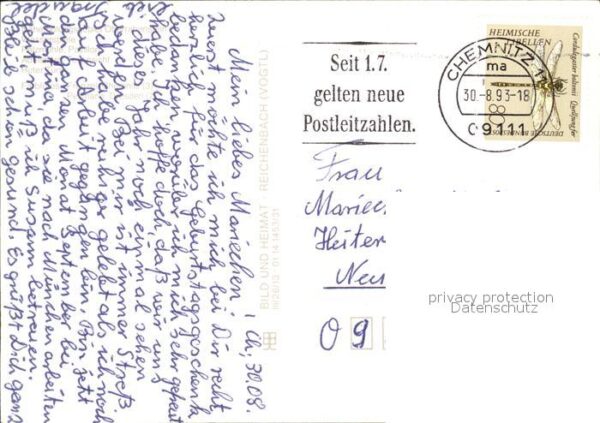 Ch, 30.08.
Mein liebes Mariechen!
Zuerst möchte ich mich bei Dir recht
herzlich für das Geburtstagsgeschenk
bedanken, worüber ich mich sehr gefreut
habe. Ich hoffe doch, daß wir uns
dieses Jahr noch einmal sehen
werden. Bei mir ist immer Streß.
Ich habe ruhiger gelebt als ich noch
auf Arbeit gegangen bin. Bin jetzt
den ganzen Monat September bei
Martina, da sie nach München arbeiten
geht, muß ich Susann betreuen.
Bleib schön gesund. Es grüßt Dich ganz
BILD UND HEIMAT REICHENBACH (VOGTL)
Seit 1.7.
gelten neue
Postleitzahlen.
CHEMNITZ 11
ma
30.-8.93-18
09111
HEIMISCHE
LIBELLEN
Cordulegaster bidentatus Quelljungfer
DEUTSCHE BUNDESPOST
Frau
Mariech
Neu
09
privacy protection
Datenschutz